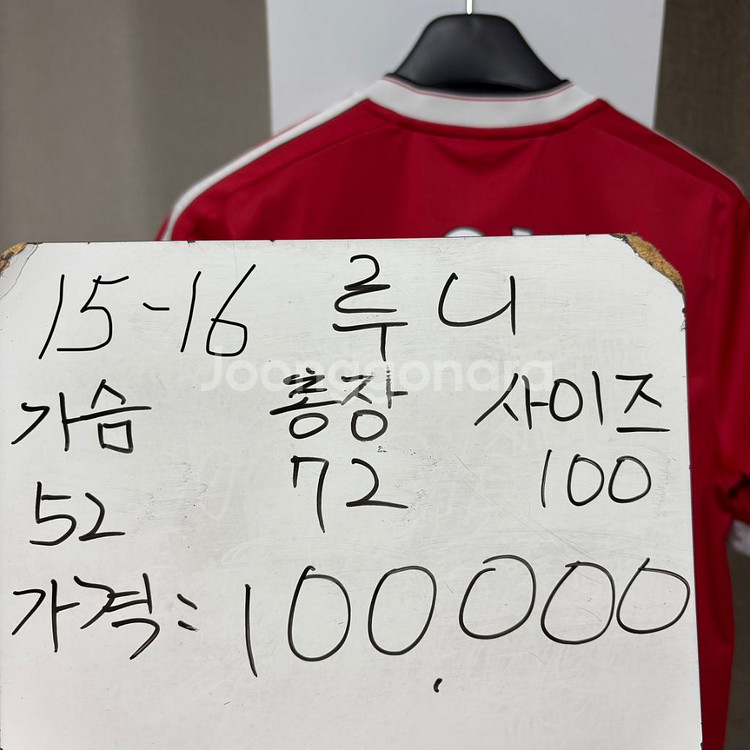 15-16 루니
Joonggonara
가슴 총장 사이즈
52 72 100
가격: 100,000